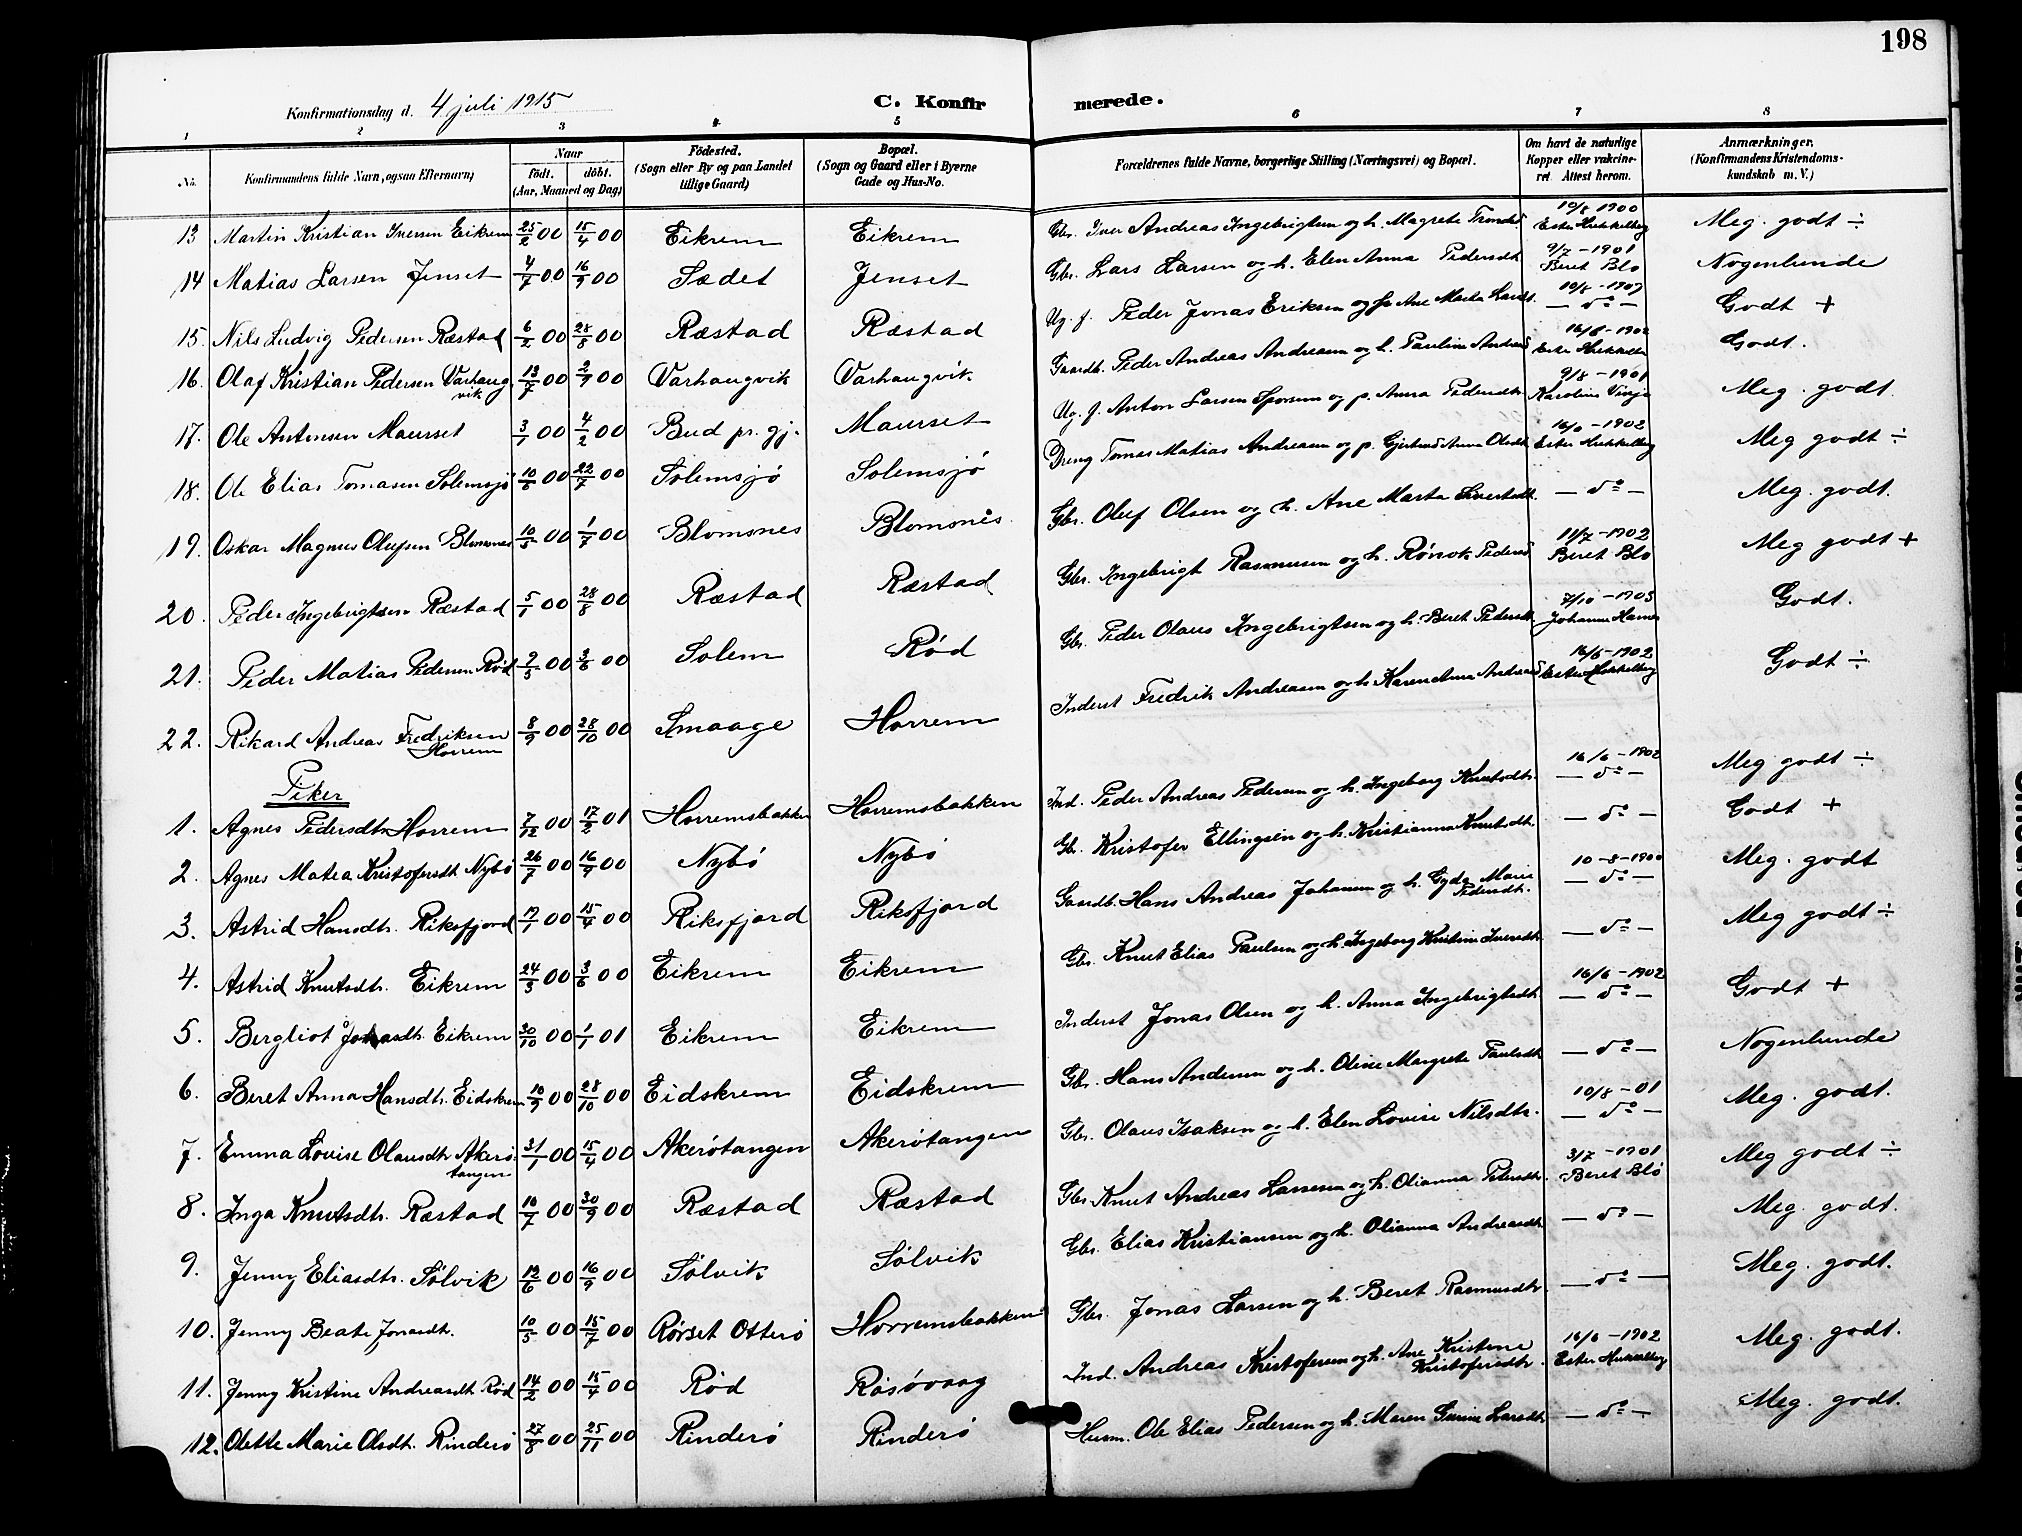 198
Konfirmationsdag d. 4 juli 1915
C. Konfirmerede.
1 2 3 4 5 6 7 8
No. Konfirmandens fulde Navn, ogsaa Efternavn) Naar födt. döbt. (Aar, Maaned og Dag) Födested. (Sogn eller By og paa Landet tillige Gaard) Bopæl. (Sogn og Gaard eller i Byerne Gade og Hus-No. Forældrenes fulde Navne, borgerlige Stilling (Næringsvei) og Bopæl. Om havt de naturlige Kopper eller vakcineret Attest herom. Anmærkninger. (Konfirmandens Kristendomskundskab m. V.)
13 Martin Kristian Iversen Eikrem 25/2 00 15/4 00 Eikrem Eikrem Gbr. Iver Andreas Ingebrigtsen og h. Magrete 19/8 1900 Ester Hukkelberg Meg. godt ÷
14 Matias Larsen Jenset 4/7 00 16/9 00 Sædet Jenset Gbr. Lars Larsen og h. Elen Anna Pedersdt 9/7 - 1901 Beret Blo Nogenlunde
15. Nils Ludvig Pedersen Ræstad 6/2 00 28/8 00 Ræstad Ræstad Ug. f. Peder Jonas Eriksen og Ane Marta Larsdt. — do — Godt +
16. Olaf Kristian Pedersen Varhaugvik 13/7 00 2/9 00 Varhaugvik Varhaugvik Gaardb. Peder Andreas Andreasen og h. Pauline Andreasd 16/6 - 1902 Godt.
17. Ole Antonsen Maurset 3/1 00 4/2 00 Bud pr. gj. Maurset Ug. f. Anton Larsen og p. Anna Pedersdtr 9/8 - 1901 Karoline Vinje Meg. godt.
18. Ole Elias Tomasen Solemsjö 10/6 00 22/7 00 Solemsjö Solemsjö Dreng Tomas Matias Andreasen og p. Gjertrud Anna Olsdt. 1902 Ester Hukkelberg Meg godt ÷
19. Oskar Magnus Olufsen Blomsnes 10/5 00 1/7 00 Blomsnes Blomsnes. Gbr. Oluf Olsen og h. Ane Marta — do — Meg. godt.
20. Peder Ingebrigtsen Ræstad 5/1 00 28/8 00 Ræstad Ræstad Gbr. Ingebrigt Rasmusen og h. Rönok Pedersd 11/7 - 1902 Beret Blo Meg godt +
21. Peder Matias Pedersen Rød 9/5 00 3/6 00 Solem Rød Gbr. Peder Olaus Ingebrigtsen og h. Beret Pedersdt. 7/10 - 1903 Godt.
22. Rikard Andreas Fredriksen Horrem 8/9 00 28/10 00 Smaage Horrem Inderst Fredrik Andreasen og h Karen Anna Andreasd 16/6 - 1902 Ester Hukkelberg Godt ÷
Piker
1. Agnes Pedersdtr Horrem 7/12 00 17/2 01 Horremsbakken Horremsbakken Ind. Peder Andreas Pedersen og h. Ingeborg Knutsdtr. 16/6 - 1902 — do — Meg godt ÷
2. Agnes Matea Kristofersdt Nybö 26/7 00 16/9 00 Nybö Nybö Gb. Kristofer Ellingsen og h. Kristianna Knutsdt. — do — Godt +
3. Astrid Hansdtr. Riksfjord 19/1 00 15/4 00 Riksfjord Riksfjord Gaardb. Hans Andreas Johansen og h. Gyda Marie Pedersdt. 10-8-1900 — do — Meg. godt
4. Astrid Knutsdtr. Eikrem 24/3 00 3/6 00 Eikrem Eikrem Gbr. Knut Elias Paulsen og h. Ingeborg Kristine Iversdt. — do — Meg godt ÷
5. Bergliot Jonasdt. Eikrem 30/10 00 1/1 01 Eikrem Eikrem Inderst Jonas Olsen og h. Anna Ingebrigtsdt. 16/6 - 1902 — do — Godt +
6. Beret Anna Hansdtr. Eidskrem 10/9 00 28/10 00 Eidskrem Eidskrem Gbr. Hans Andersen og h. Oline Margrete Paulsdt. — do — Nogenlunde
7. Emma Lovise Olausdtr Akerötangen 31/1 00 15/4 00 Akerötangen Akerötangen Gbr. Olaus Isaksen og h. Elen Lovise Nilsdtr. 10/8 - 01 — do — Meg. godt.
8. Inga Knutsdtr. Ræstad 10/7 00 30/9 00 Ræstad Ræstad Gbr. Knut Andreas Larsen og h. Olianna Petersdt. 3/7 - 1901 Beret Blö Meg godt ÷
9. Jenny Eliasdtr. Sølvik 12/6 00 16/9 00 Sølvik Sølvik Gbr. Elias Kristiansen og h. Olianna Andreasdt. — do — Meg. godt.
10. Jenny Beate Jonasdt. 10/5 00 15/7 00 Rørset Otterö Horremsbakken Gbr. Jonas Larsen og h. Beret Rasmusdtr. — do — Meg. godt.
11. Jenny Kristine Andreasdt. Rød 14/2 00 15/4 00 Rød Rösövaag Ind. Andreas Kristofersen og h. Ane Kristene Kristofersdtr. 16/6 - 1902 Ester Hukkelberg Meg. godt.
12. Olette Marie Olsdt. Rinderö 27/8 00 25/11 00 Rinderö Rinderö Husm. Ole Elias Pedersen og h. Maren Larsdt. — do — Meg. godt.